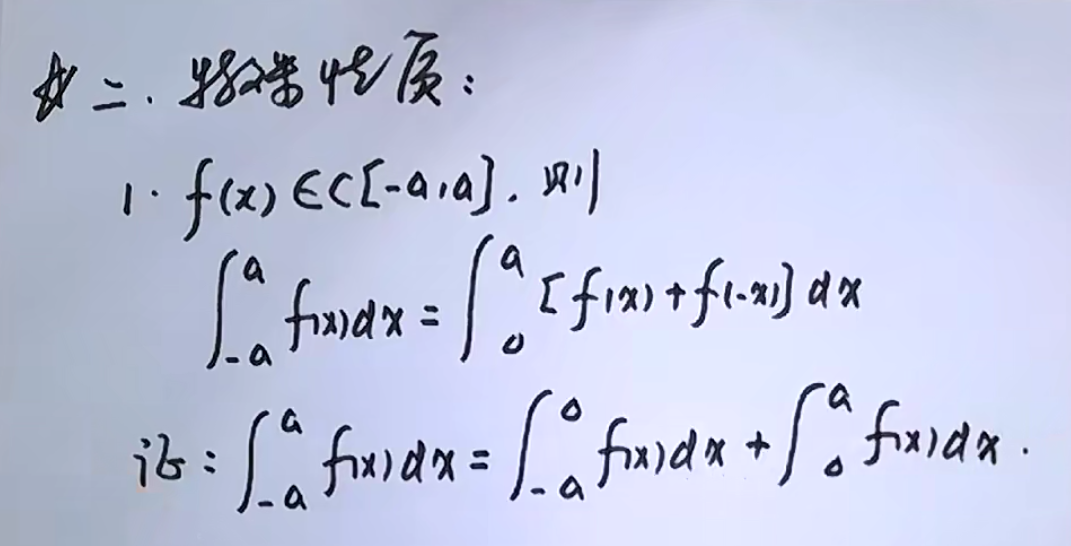 ☆ 二. 特殊性质:
1. f(x)∈C[-a,a]. 则
∫_{-a}^{a} f(x)dx = ∫_{0}^{a} [f(x)+f(-x)]dx
证: ∫_{-a}^{a} f(x)dx = ∫_{-a}^{0} f(x)dx + ∫_{0}^{a} f(x)dx.